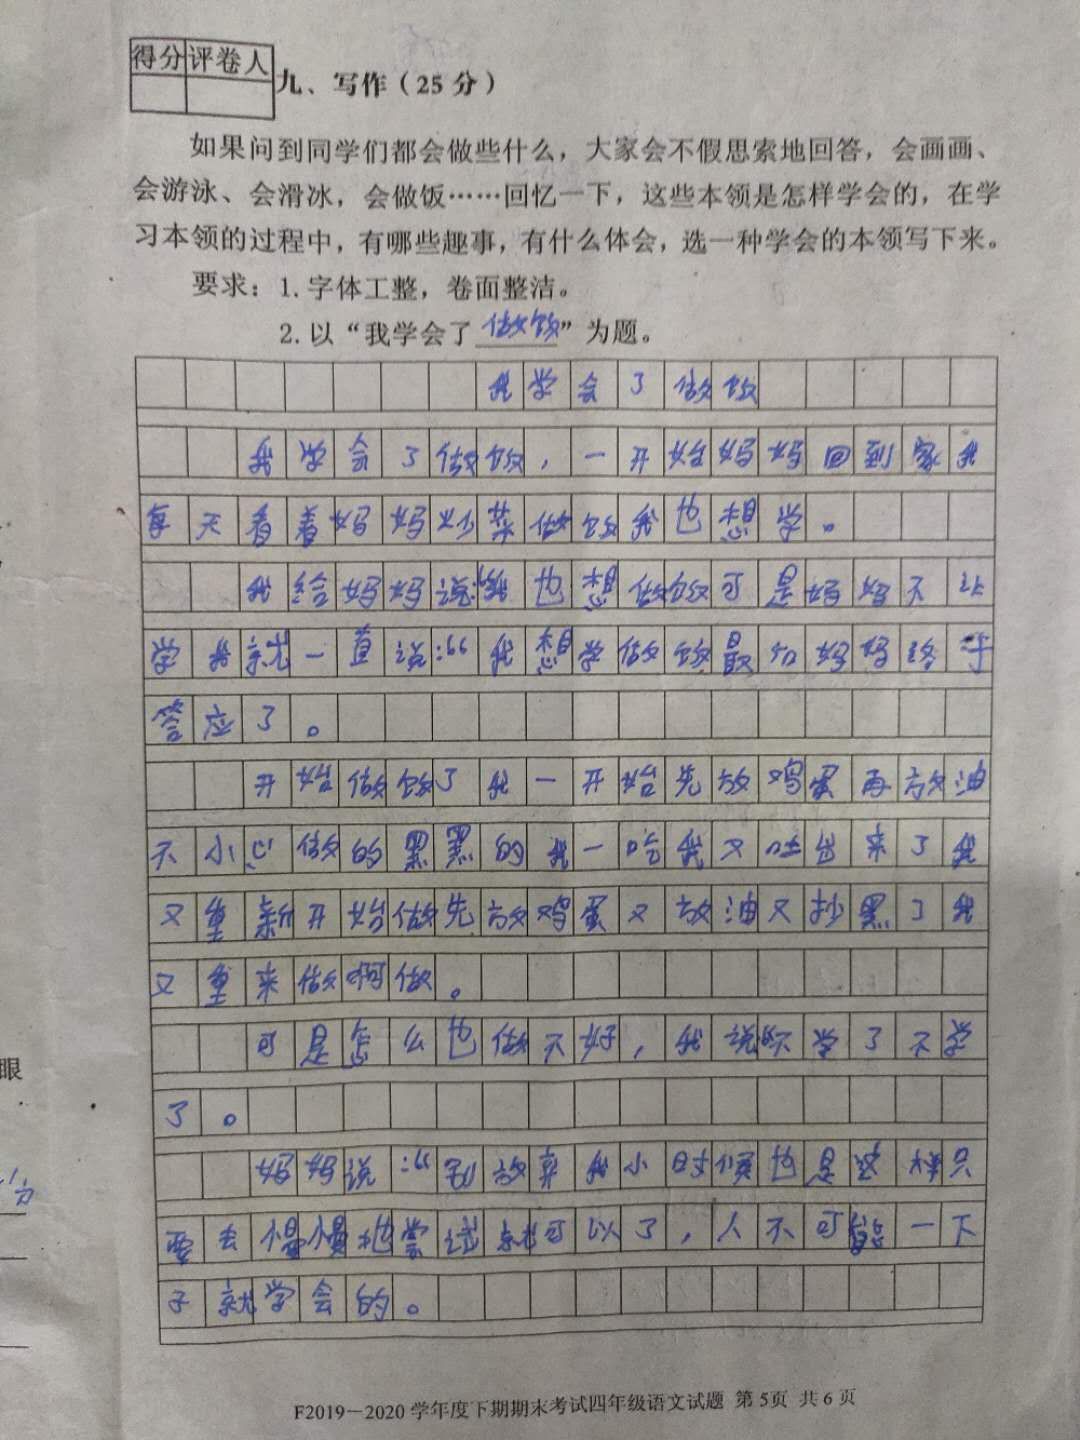 得分 评卷人
九、写作（25分）
如果问到同学们都会做些什么，大家会不假思索地回答，会画画、
会游泳、会滑冰，会做饭……回忆一下，这些本领是怎样学会的，在学
习本领的过程中，有哪些趣事，有什么体会，选一种学会的本领写下来。
要求：1.字体工整，卷面整洁。
2.以“我学会了做饭”为题。
我学会了做饭
我学会了做饭，一开始妈妈回到家我
每天看着妈妈炒菜做饭我也想学。
我给妈妈说:“我也想做饭可是妈妈不让
学我就一直说:“我想学做饭最后妈妈终于
答应了。
开始做饭了我一开始先放鸡蛋再放油
不小心做的黑黑的我一吃我又吐出来了我
又重新开始做先放鸡蛋又放油又抄黑了我
又重来做啊做。
可是怎么也做不好，我说不学了不学
了。
妈妈说:“别放弃我小时候也是这样只
要去慢慢地尝试就可以了，人不可能一下
子就学会的。
眼
分
F2019－2020学年度下期期末考试四年级语文试题 第5页 共6页